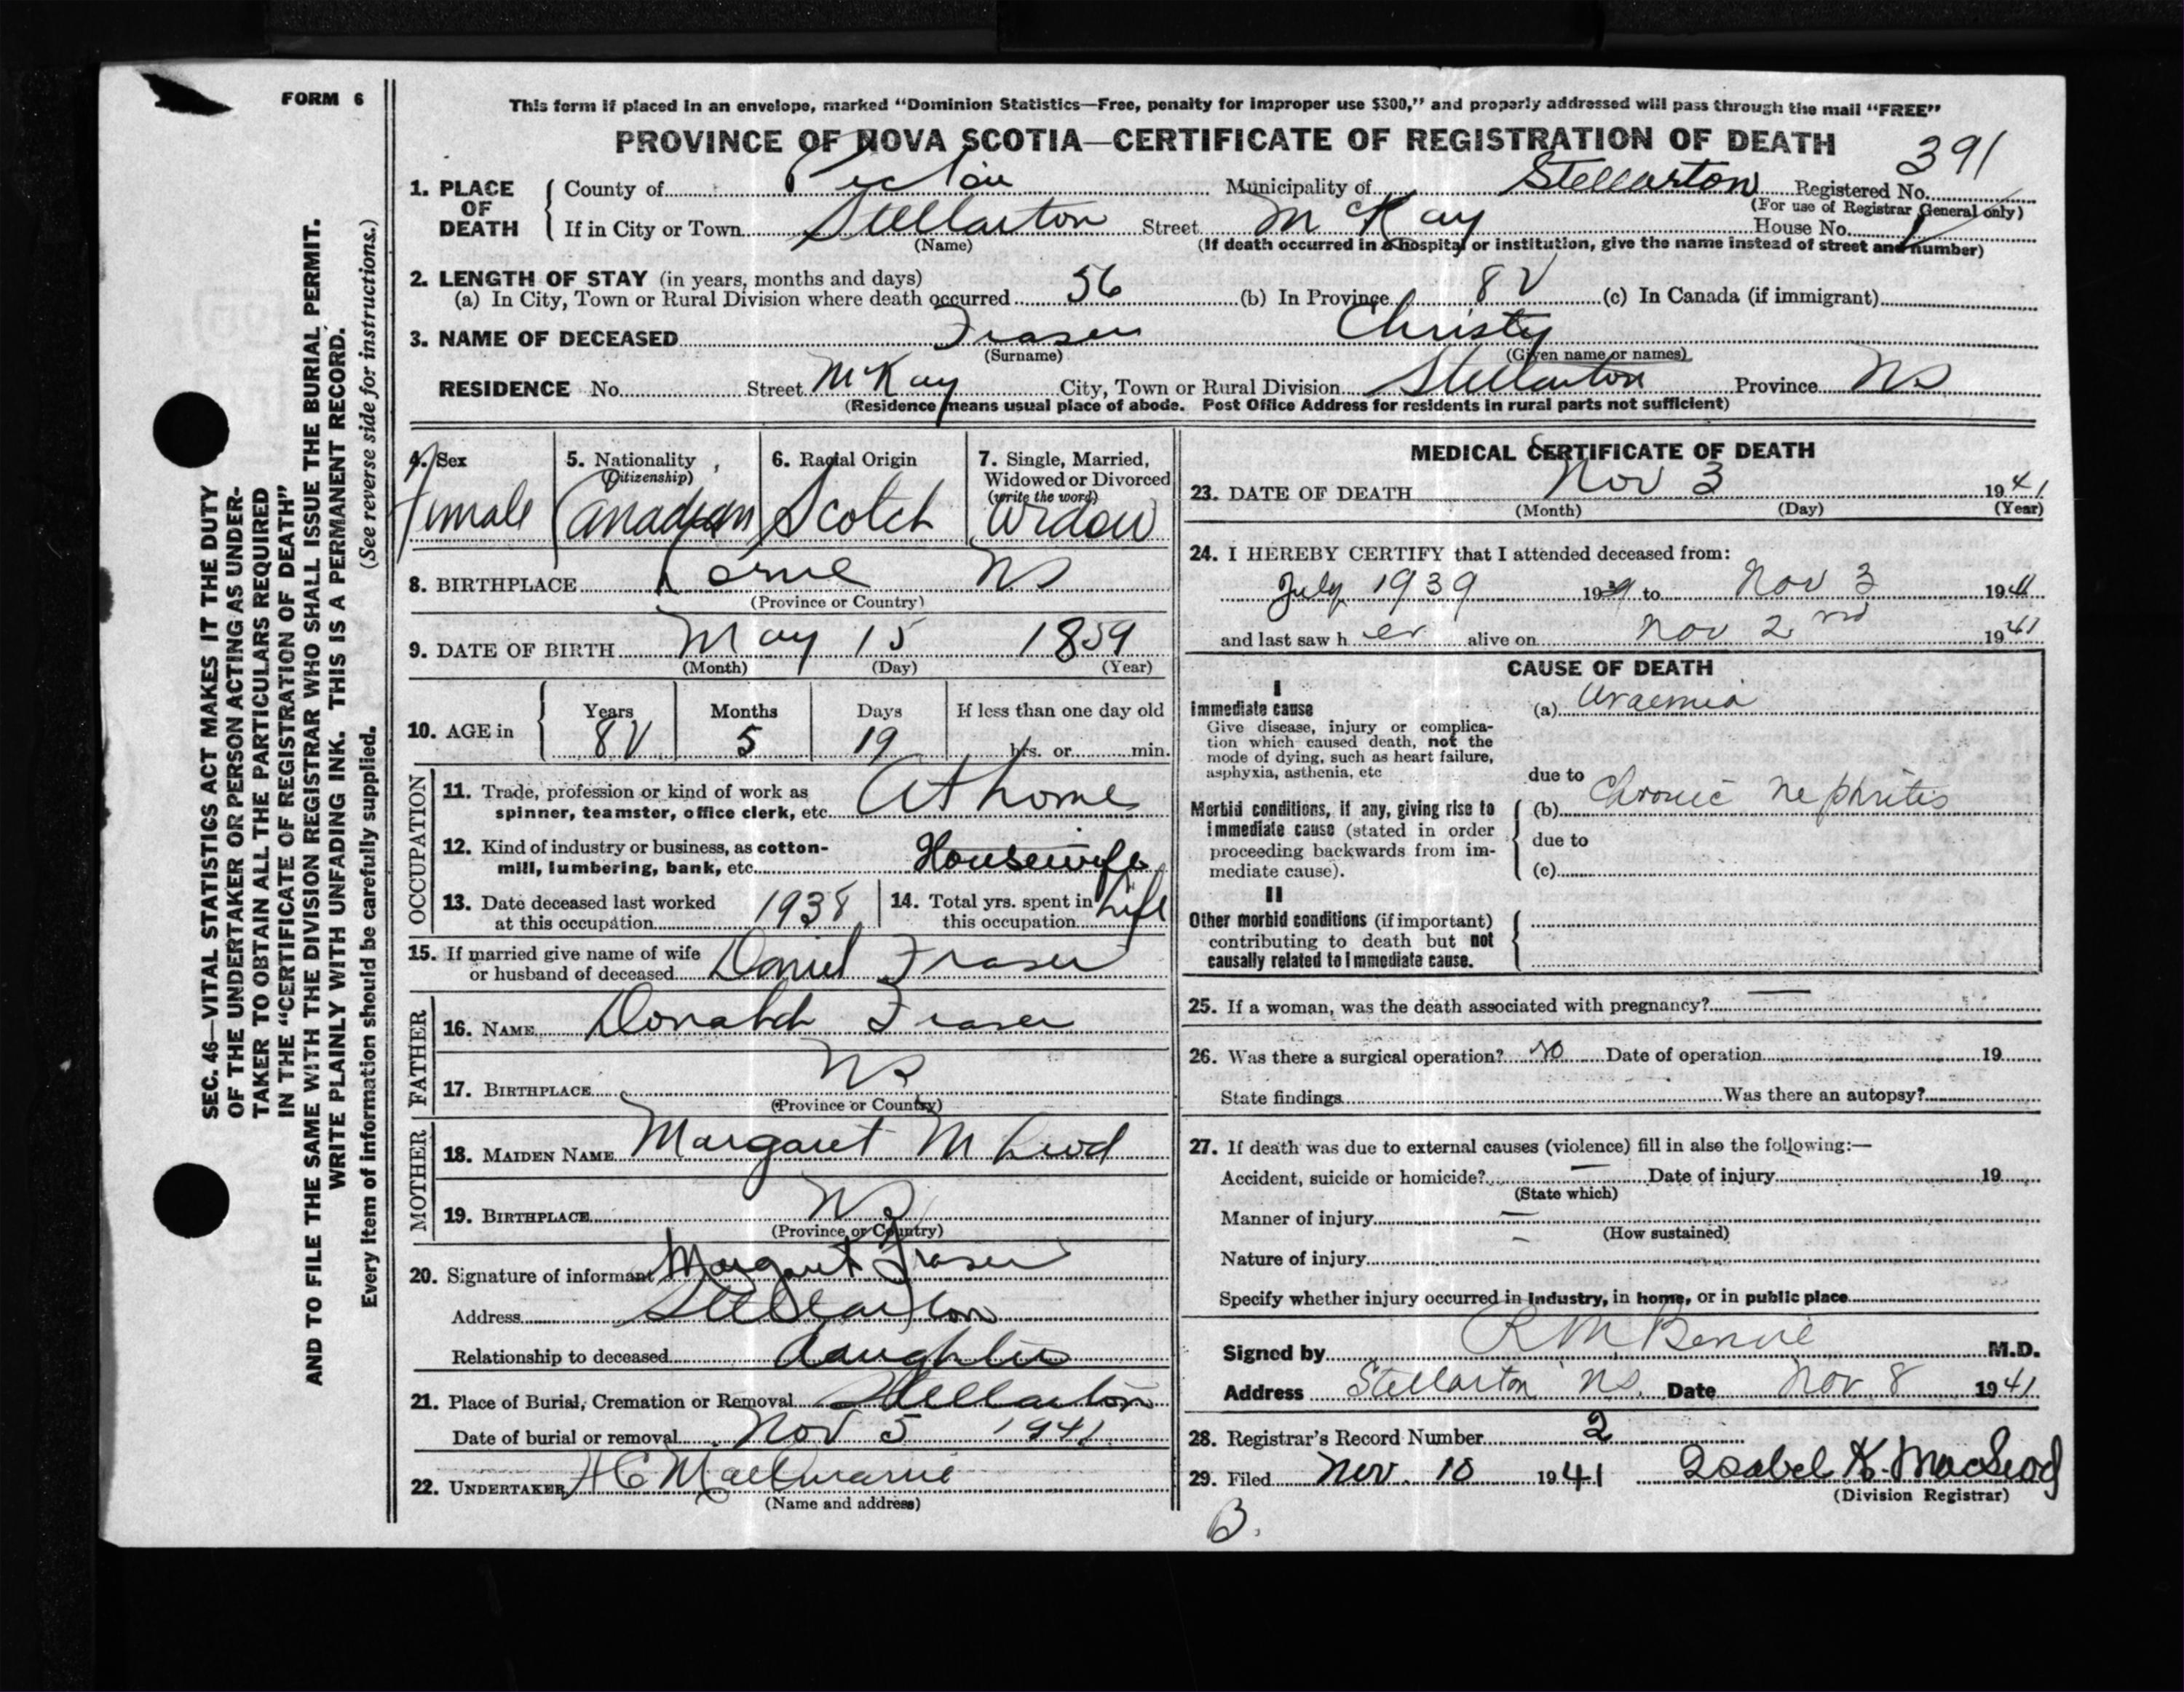 FORM 6
This form if placed in an envelope, marked “Dominion Statistics—Free, penalty for improper use $300,” and properly addressed will pass through the mail “FREE”
PROVINCE OF NOVA SCOTIA—CERTIFICATE OF REGISTRATION OF DEATH
391
1. PLACE OF DEATH
County of Pictou Municipality of Stellarton Registered No.
(For use of Registrar General only)
If in City or Town Stellarton Street McKay House No.
(Name) (If death occurred in a hospital or institution, give the name instead of street and number)
2. LENGTH OF STAY (in years, months and days)
(a) In City, Town or Rural Division where death occurred 56 (b) In Province 82 (c) In Canada (if immigrant)
3. NAME OF DECEASED Fraser Christy
(Surname) (Given name or names)
RESIDENCE No. Street McKay City, Town or Rural Division Stellarton Province NS
(Residence means usual place of abode. Post Office Address for residents in rural parts not sufficient)
4. Sex
Female
5. Nationality
(Citizenship)
Canadian
6. Racial Origin
Scotch
7. Single, Married,
Widowed or Divorced
(write the word)
Widow
8. BIRTHPLACE Lorne NS
(Province or Country)
9. DATE OF BIRTH May 15 1859
(Month) (Day) (Year)
10. AGE in
Years Months Days If less than one day old
82 5 19 hrs. or min.
OCCUPATION
11. Trade, profession or kind of work as
spinner, teamster, office clerk, etc. At home
12. Kind of industry or business, as cotton-
mill, lumbering, bank, etc. Housewife
13. Date deceased last worked
at this occupation 1938
14. Total yrs. spent in
this occupation Life
15. If married give name of wife
or husband of deceased Daniel Fraser
FATHER
16. NAME Donald Fraser
17. BIRTHPLACE NS
(Province or Country)
MOTHER
18. MAIDEN NAME Margaret McLeod
19. BIRTHPLACE NS
(Province or Country)
20. Signature of informant Margaret Fraser
Address Stellarton
Relationship to deceased daughter
21. Place of Burial, Cremation or Removal Stellarton
Date of burial or removal Nov 5 1941
22. UNDERTAKER H C
(Name and address)
MEDICAL CERTIFICATE OF DEATH
23. DATE OF DEATH Nov 3 1941
(Month) (Day) (Year)
24. I HEREBY CERTIFY that I attended deceased from:
July 1939 1939 to Nov 3 1941
and last saw her alive on Nov 2nd 1941
CAUSE OF DEATH
I
Immediate cause
Give disease, injury or complica-
tion which caused death, not the
mode of dying, such as heart failure,
asphyxia, asthenia, etc
(a) Uraemia
due to
Morbid conditions, if any, giving rise to
immediate cause (stated in order
proceeding backwards from im-
mediate cause).
(b) Chronic nephritis
due to
(c)
II
Other morbid conditions (if important)
contributing to death but not
causally related to immediate cause.
25. If a woman, was the death associated with pregnancy? —
26. Was there a surgical operation? No Date of operation 19
State findings Was there an autopsy?
27. If death was due to external causes (violence) fill in also the following:—
Accident, suicide or homicide? — Date of injury 19
(State which)
Manner of injury —
(How sustained)
Nature of injury –
Specify whether injury occurred in industry, in home, or in public place
Signed by R M Benvie M.D.
Address Stellarton NS. Date Nov. 8 1941
28. Registrar's Record Number 2
29. Filed Nov. 10 1941 Isabel K. MacLeod
(Division Registrar)
B.
SEC. 46—VITAL STATISTICS ACT MAKES IT THE DUTY
OF THE UNDERTAKER OR PERSON ACTING AS UNDER-
TAKER TO OBTAIN ALL THE PARTICULARS REQUIRED
IN THE “CERTIFICATE OF REGISTRATION OF DEATH”
AND TO FILE THE SAME WITH THE DIVISION REGISTRAR WHO SHALL ISSUE THE BURIAL PERMIT.
WRITE PLAINLY WITH UNFADING INK. THIS IS A PERMANENT RECORD.
Every item of information should be carefully supplied. (See reverse side for instructions.)